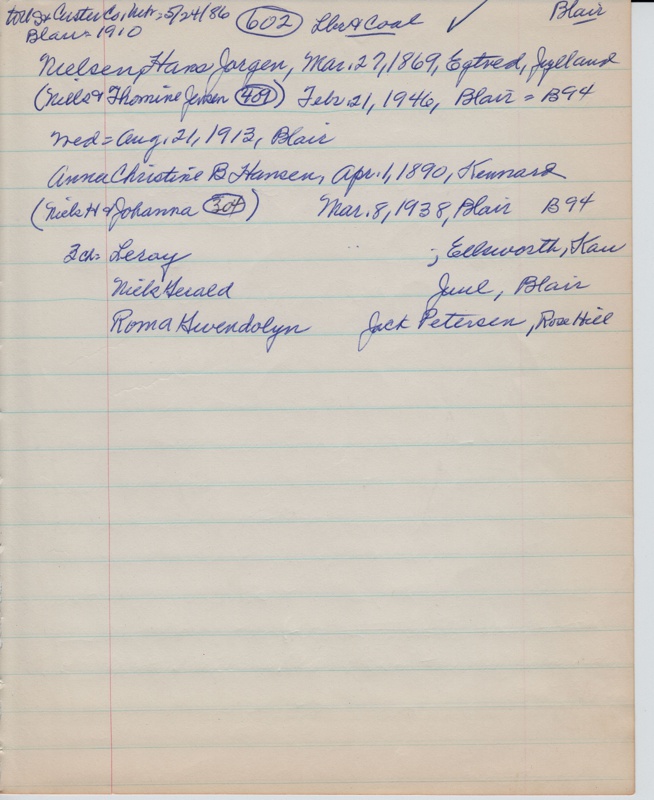 to U.S. & Custer Co., Nebr. = 5/24/86 (602) Lbr & Coal ✓ Blair
Blair = 1910
Nielsen, Hans Jorgen, Mar. 27, 1869, Egtved, Jylland
(Niels & Thomine Jensen (409)) Febr. 21, 1946, Blair = B94
wed = Aug. 21, 1913, Blair
Anna Christine B Hansen, Apr. 1, 1890, Kennard
(Niels H & Johanna (304)) Mar. 8, 1938, Blair B94
3 ch = Leroy ; Ellsworth, Kan
Niels Gerald Juul, Blair
Roma Gwendolyn Jack Petersen, Rose Hill